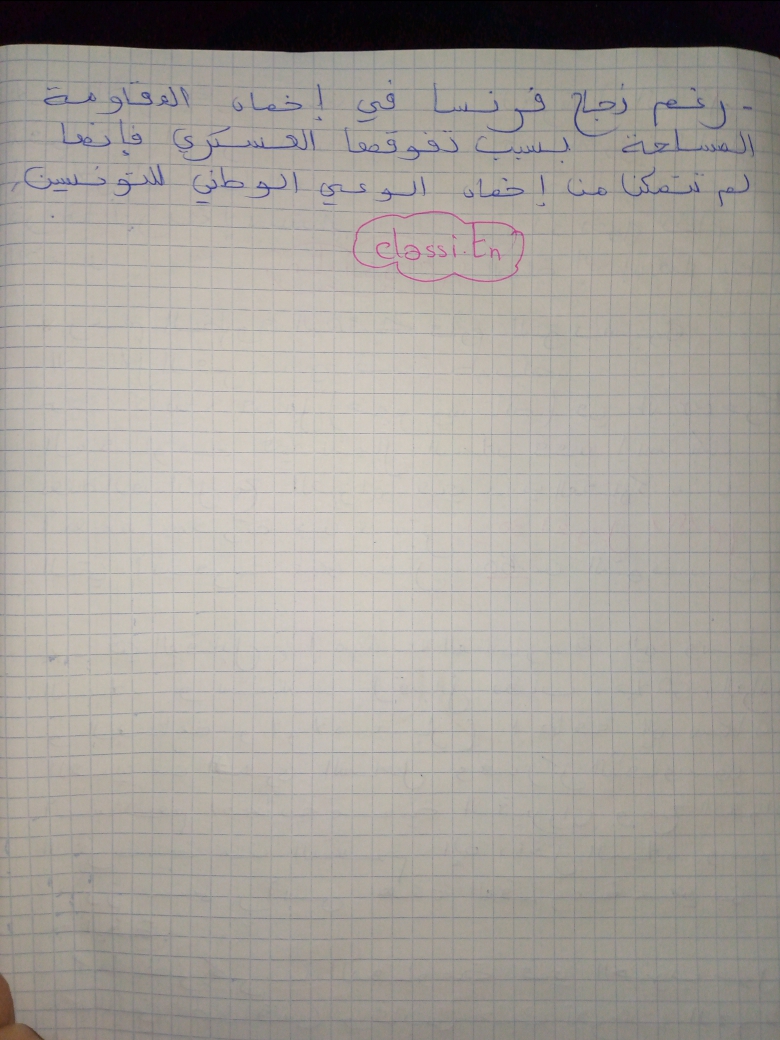 - رغم نجاح فرنسا في إخماد المقاومة
المسلحة بسبب تفوقها العسكري فإنها
لم تتمكن من إخماد الوعي الوطني للتونسين.
classi.tn